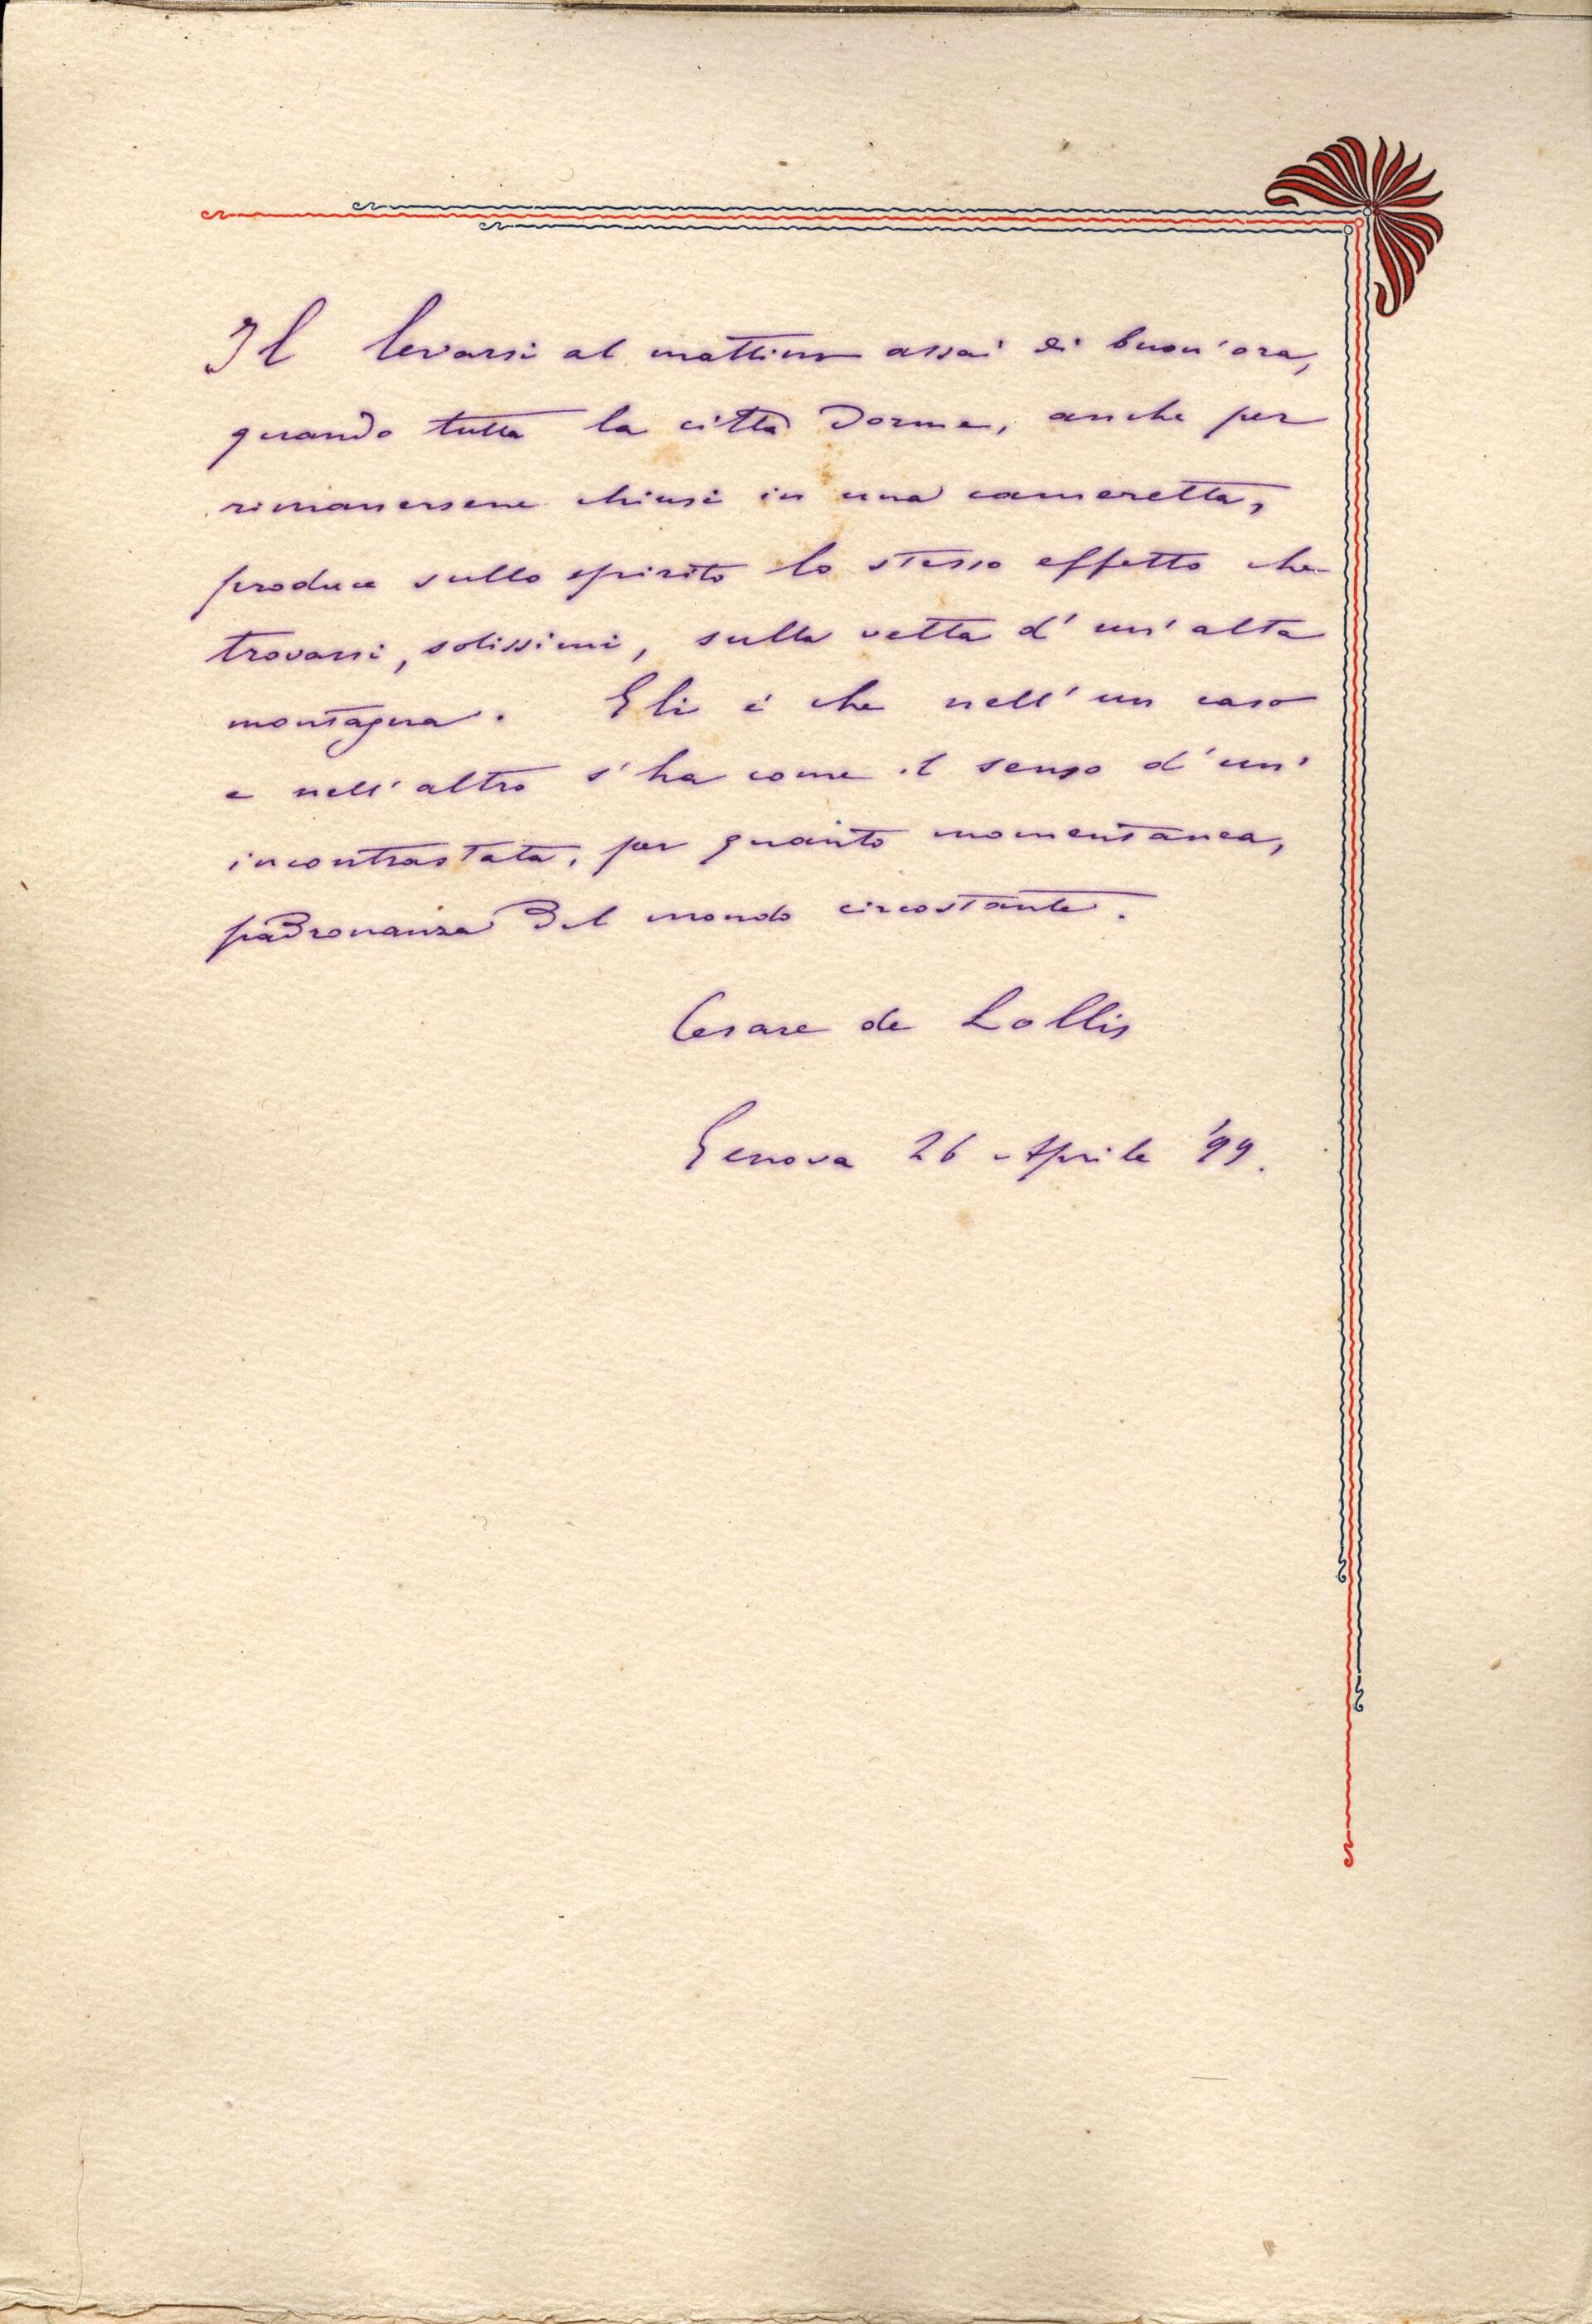 Il levarsi al mattino assai di buon'ora,
quando tutta la città dorme, anche per
rimanersene chiusi in una cameretta,
produce sullo spirito lo stesso effetto che
trovarsi, solissimi, sulla vetta d'un'alta
montagna. Gli è che nell'un caso
e nell'altro s'ha come il senso d'un'
incontrastata, per quanto momentanea,
padronanza del mondo circostante.
Cesare de Lollis
Genova 26 Aprile '99.